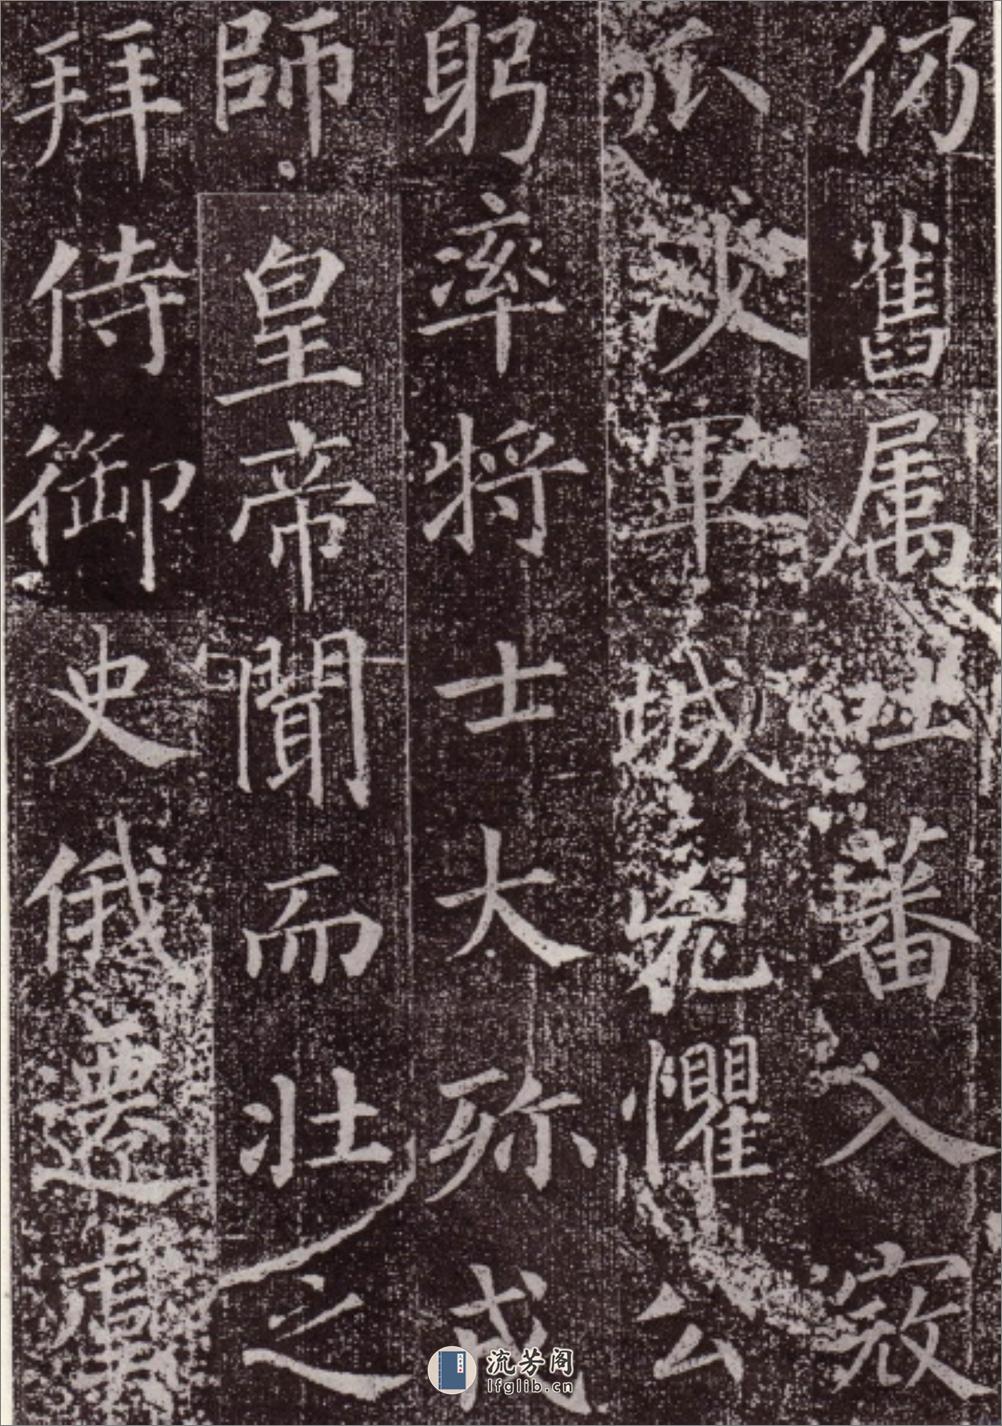 仍舊属吐蕃入寇
軍城懼公
躬率將士大殄戎
師皇帝聞而壯之
拜侍御史俄遷虞
流芳阁
lfglib.cn